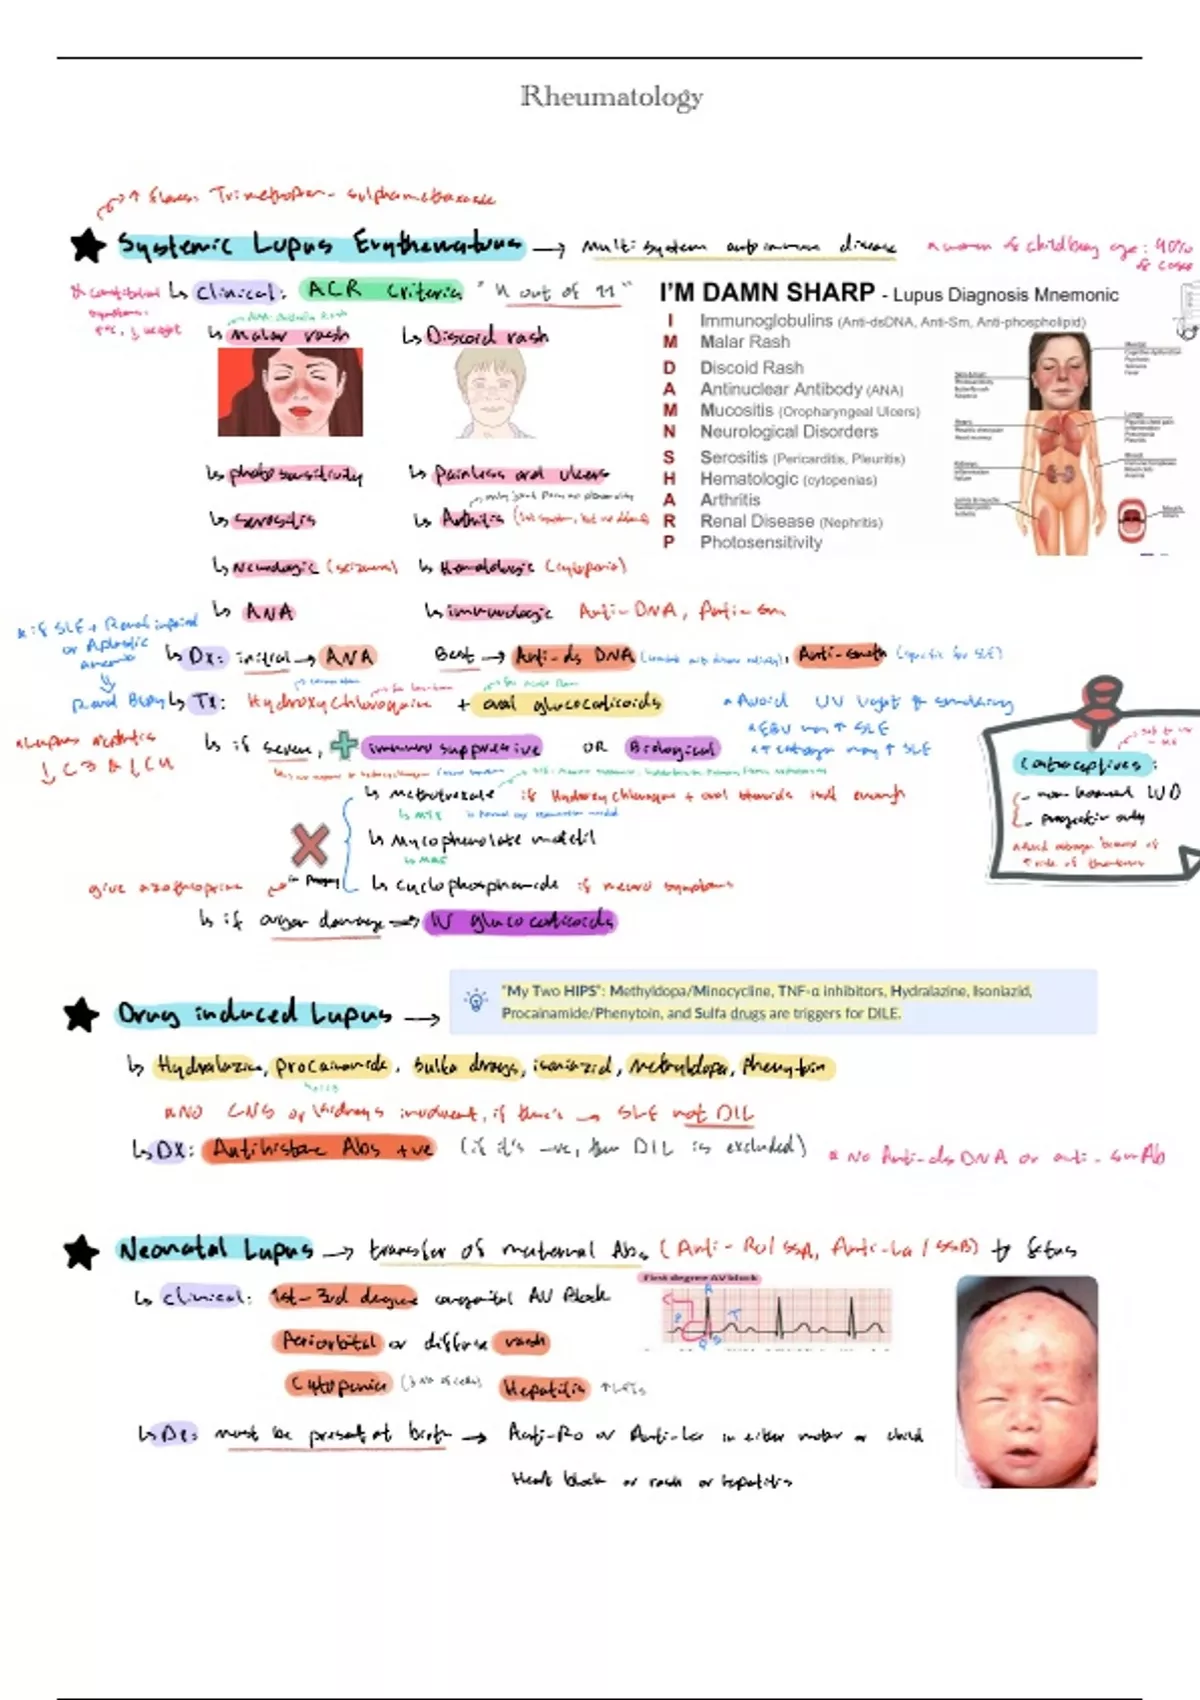 Rheumatology
Trimethoprim - sulphamethoxazole
Systemic Lupus Erythematosus → multisystem autoimmune disease
women of childbearing age: 90% of cases
↳ Clinical: ACR Criteria "4 out of 11"
I'M DAMN SHARP - Lupus Diagnosis Mnemonic
I Immunoglobulins (Anti-dsDNA, Anti-Sm, Anti-phospholipid)
M Malar Rash
D Discoid Rash
A Antinuclear Antibody (ANA)
M Mucositis (Oropharyngeal Ulcers)
N Neurological Disorders
S Serositis (Pericarditis, Pleuritis)
H Hematologic (cytopenias)
A Arthritis
R Renal Disease (Nephritis)
P Photosensitivity
↳ Malar rash ↳ Discoid rash
↳ photosensitivity ↳ Painless oral ulcers
↳ Serositis ↳ Arthritis
↳ Neurologic (seizures) ↳ Hematologic (cytopenia)
↳ ANA ↳ immunologic Anti-DNA, Anti-sm
* if SLE + Renal impaired
or Aplastic
anemia
↓
Renal Biopsy
↳ Dx: initial → ANA Best → Anti-ds DNA, Anti-smith (specific for SLE)
↳ Tx: Hydroxychloroquine + oral glucocorticoids
* Avoid UV light & smoking
* EBV may ↑ SLE
* ↑ estrogen may ↑ SLE
* Lupus nephritis
↓ C3 & ↓ C4
↳ if severe, + immunosuppressive OR Biological
↳ methotrexate if Hydroxychloroquine + oral steroids not enough
↳ MTX
↳ Mycophenolate mofetil
↳ MMF
↳ Cyclophosphamide if neuro symptoms
give azathioprine in Pregnancy
↳ if organ damage → IV glucocorticoids
Contraceptives:
- non hormonal IUD
- progestin only
* Avoid estrogen because of
↑ risk of thrombosis
Drug induced Lupus →
"My Two HIPS": Methyldopa/Minocycline, TNF-α inhibitors, Hydralazine, Isoniazid,
Procainamide/Phenytoin, and Sulfa drugs are triggers for DILE.
↳ Hydralazine, procainamide, sulfa drugs, isoniazid, methyldopa, phenytoin
* NO CNS or kidneys involvement, if there's → SLE not DIL
↳ Dx: Antihistone Abs +ve (if it's -ve, then DIL is excluded)
* No Anti-ds DNA or anti-sm Ab
Neonatal Lupus → transfer of maternal Abs (Anti-Ro/SSA, Anti-La/SSB) to fetus
↳ Clinical: 1st-3rd degree congenital AV Block
First degree AV block
Periorbital or diffuse rash
Cytopenia (↓ no of cells) Hepatitis ↑ LFTs
↳ Dx: must be present at birth → Anti-Ro or Anti-La in either mother or child
Heart block or rash or hepatitis